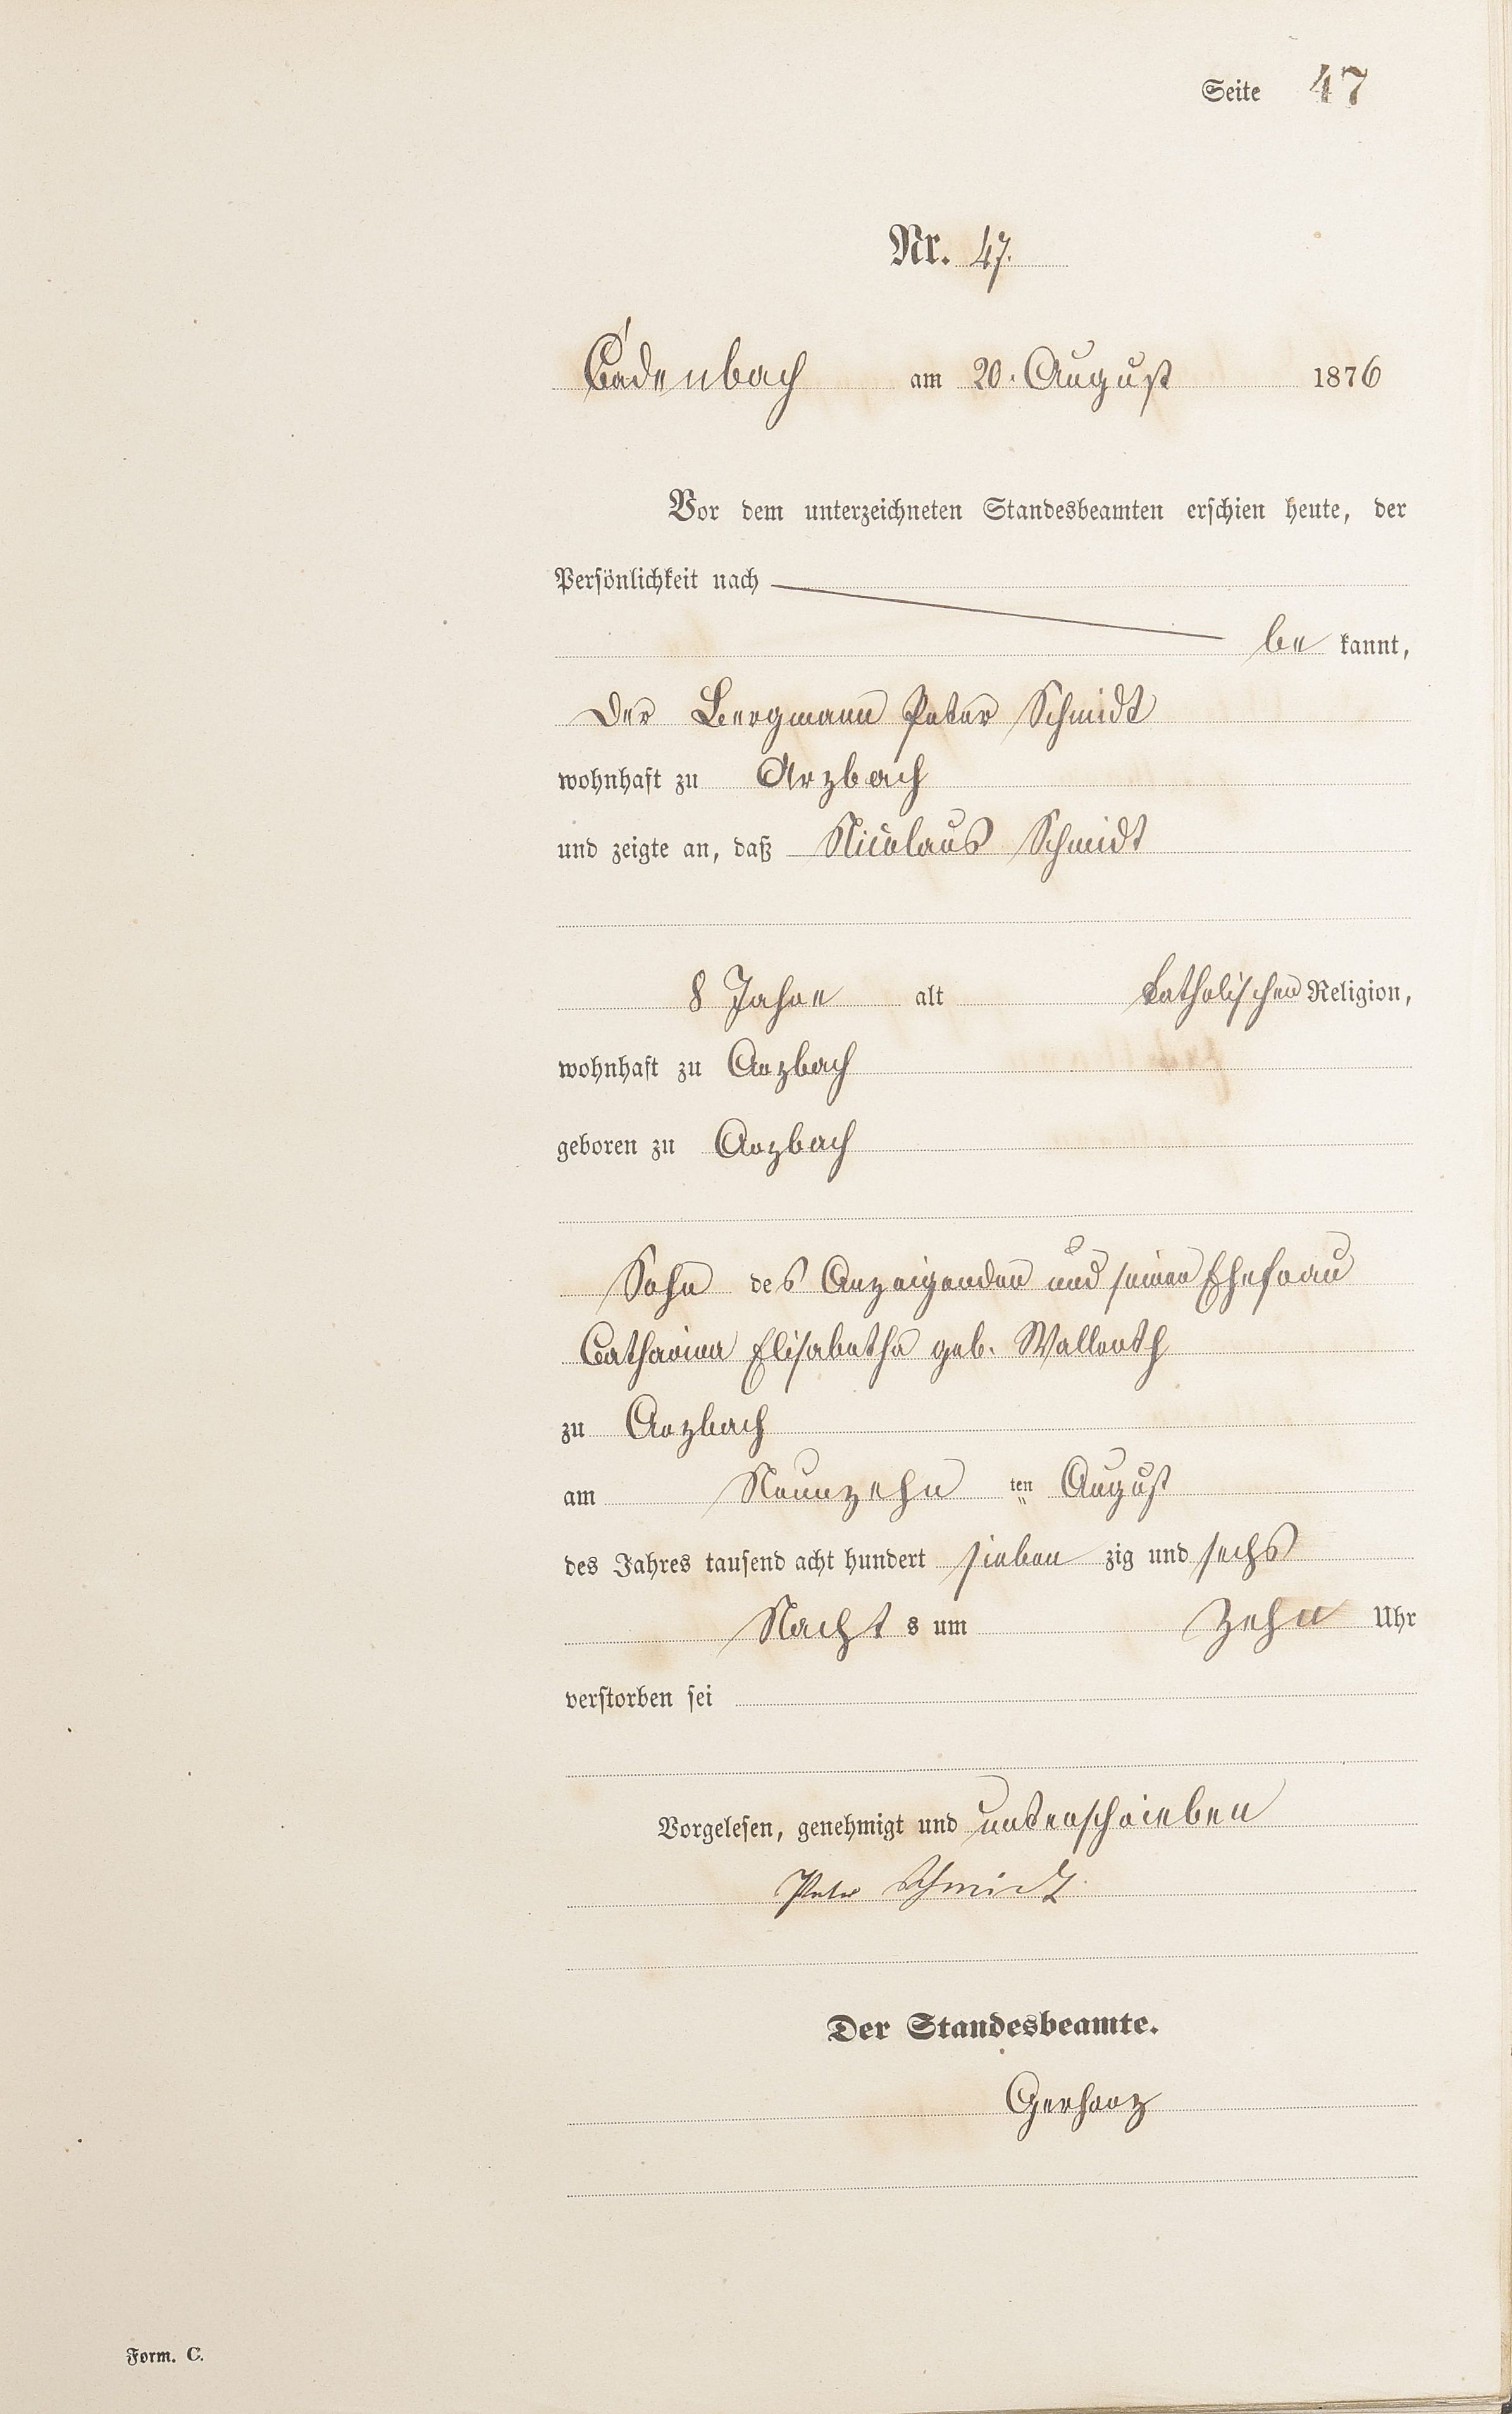 Seite 47
Nr. 47.
Cadenbach am 20. August 1876
Vor dem unterzeichneten Standesbeamten erschien heute, der
Persönlichkeit nach
be kannt,
der Bergmann Peter Schmidt
wohnhaft zu Arzbach
und zeigte an, daß Nicolaus Schmidt
8 Jahre alt katholischen Religion,
wohnhaft zu Arzbach
geboren zu Arzbach
Sohn des Anzeigenden und seiner Ehefrau
Catharina Elisabetha geb. Wallroth
zu Arzbach
am Neunzehn ten August
des Jahres tausend acht hundert sieben zig und sechs
Nacht s um zehn Uhr
verstorben sei
Vorgelesen, genehmigt und unterschrieben
Peter Schmidt
Der Standesbeamte.
Gerharz
Form. C.